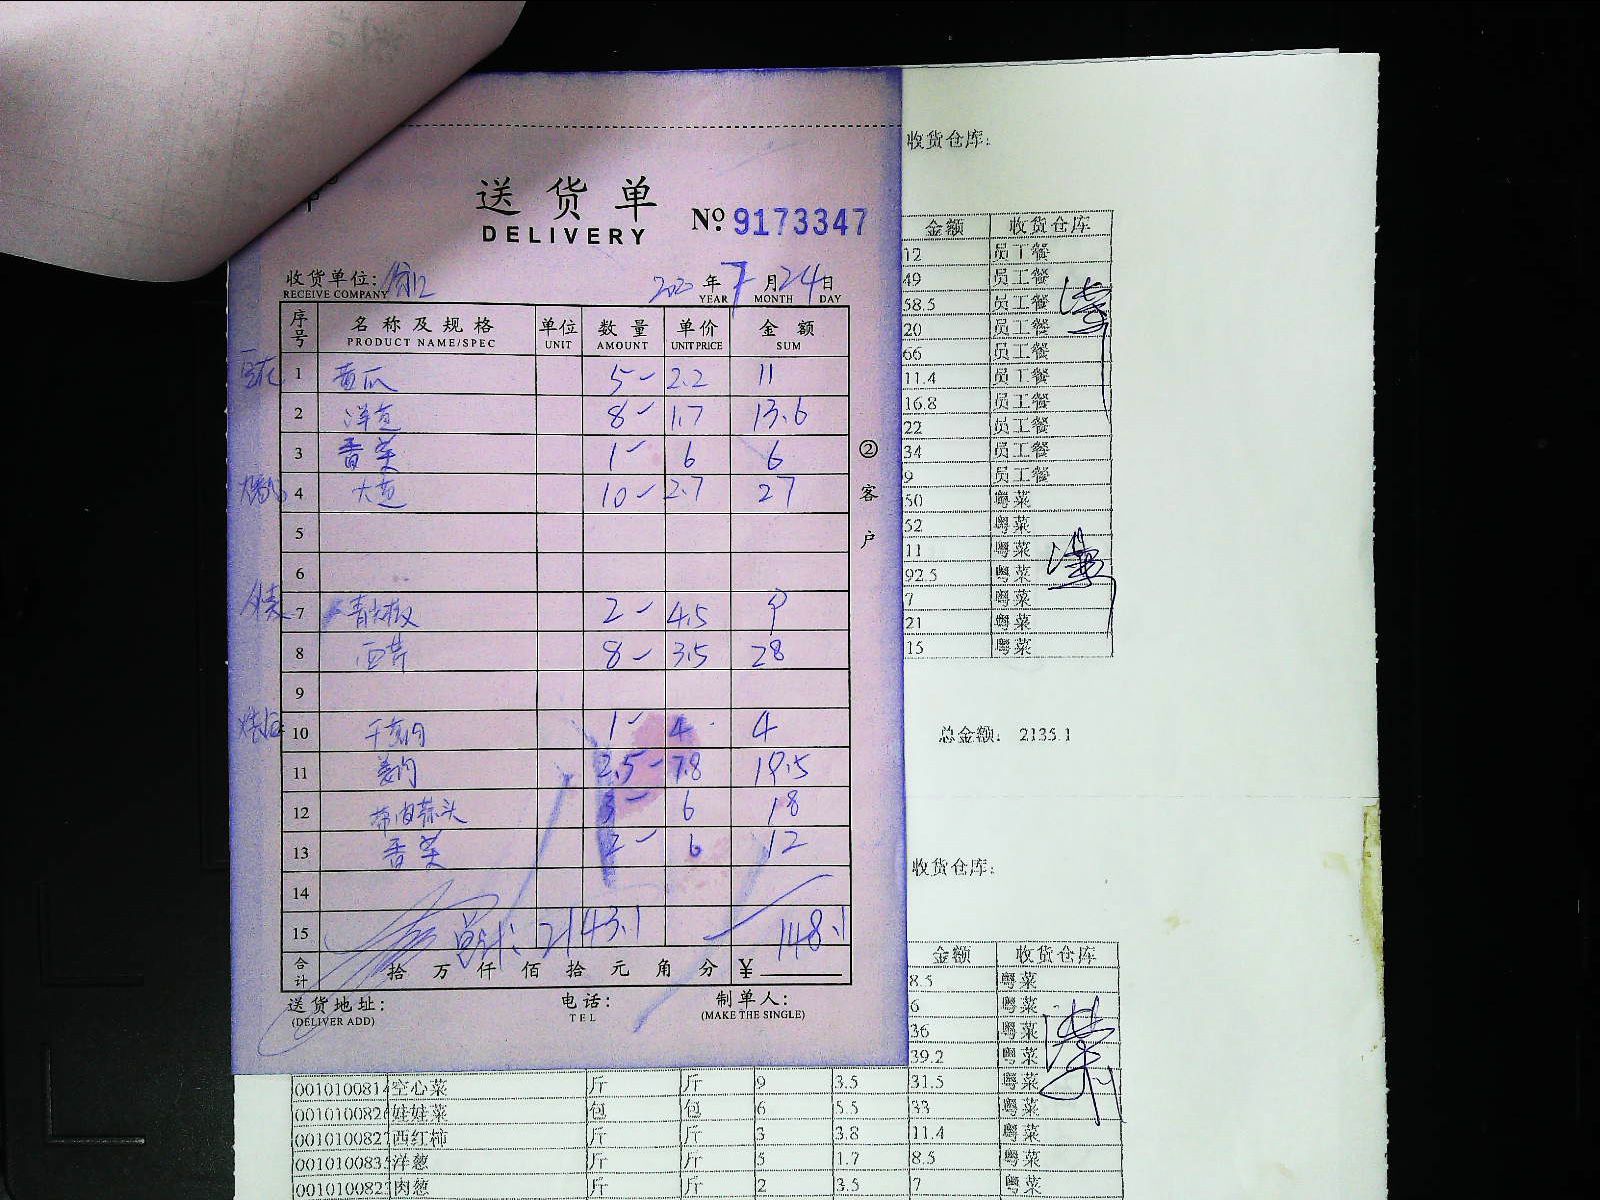 送货单
DELIVERY
No: 9173347
收货单位:
RECEIVE COMPANY
年 7 月 24 日
YEAR MONTH DAY
序号 名称及规格 单位 数量 单价 金额
PRODUCT NAME/SPEC UNIT AMOUNT UNIT PRICE SUM
1 黄瓜 5- 2.2 11
2 洋葱 8- 1.7 13.6
3 香菜 1- 6 6
4 大葱 10- 2.7 27
5
6
7 青尖椒 2- 4.5 9
8 西芹 8- 3.5 28
9
10 干葱肉 1- 4 4
11 姜肉 2.5- 7.8 19.5
12 带皮蒜头 3- 6 18
13 香菜 2- 6 12
14
15 总计: 2143.1 148.1
合计 拾 万 仟 佰 拾 元 角 分 ¥
送货地址: 电话: 制单人:
(DELIVER ADD) TEL (MAKE THE SINGLE)
② 客户
收货仓库:
金额 收货仓库
12 员工餐
49 员工餐
58.5 员工餐
20 员工餐
66 员工餐
11.4 员工餐
16.8 员工餐
22 员工餐
34 员工餐
9 员工餐
50 粤菜
52 粤菜
11 粤菜
92.5 粤菜
7 粤菜
21 粤菜
15 粤菜
总金额: 2135.1
收货仓库:
金额 收货仓库
8.5 粤菜
6 粤菜
36 粤菜
39.2 粤菜
001010081 空心菜 斤 斤 9 3.5 31.5 粤菜
001010082 娃娃菜 包 包 6 5.5 33 粤菜
001010082 西红柿 斤 斤 3 3.8 11.4 粤菜
001010083 洋葱 斤 斤 5 1.7 8.5 粤菜
001010082 肉葱 斤 斤 2 3.5 7 粤菜